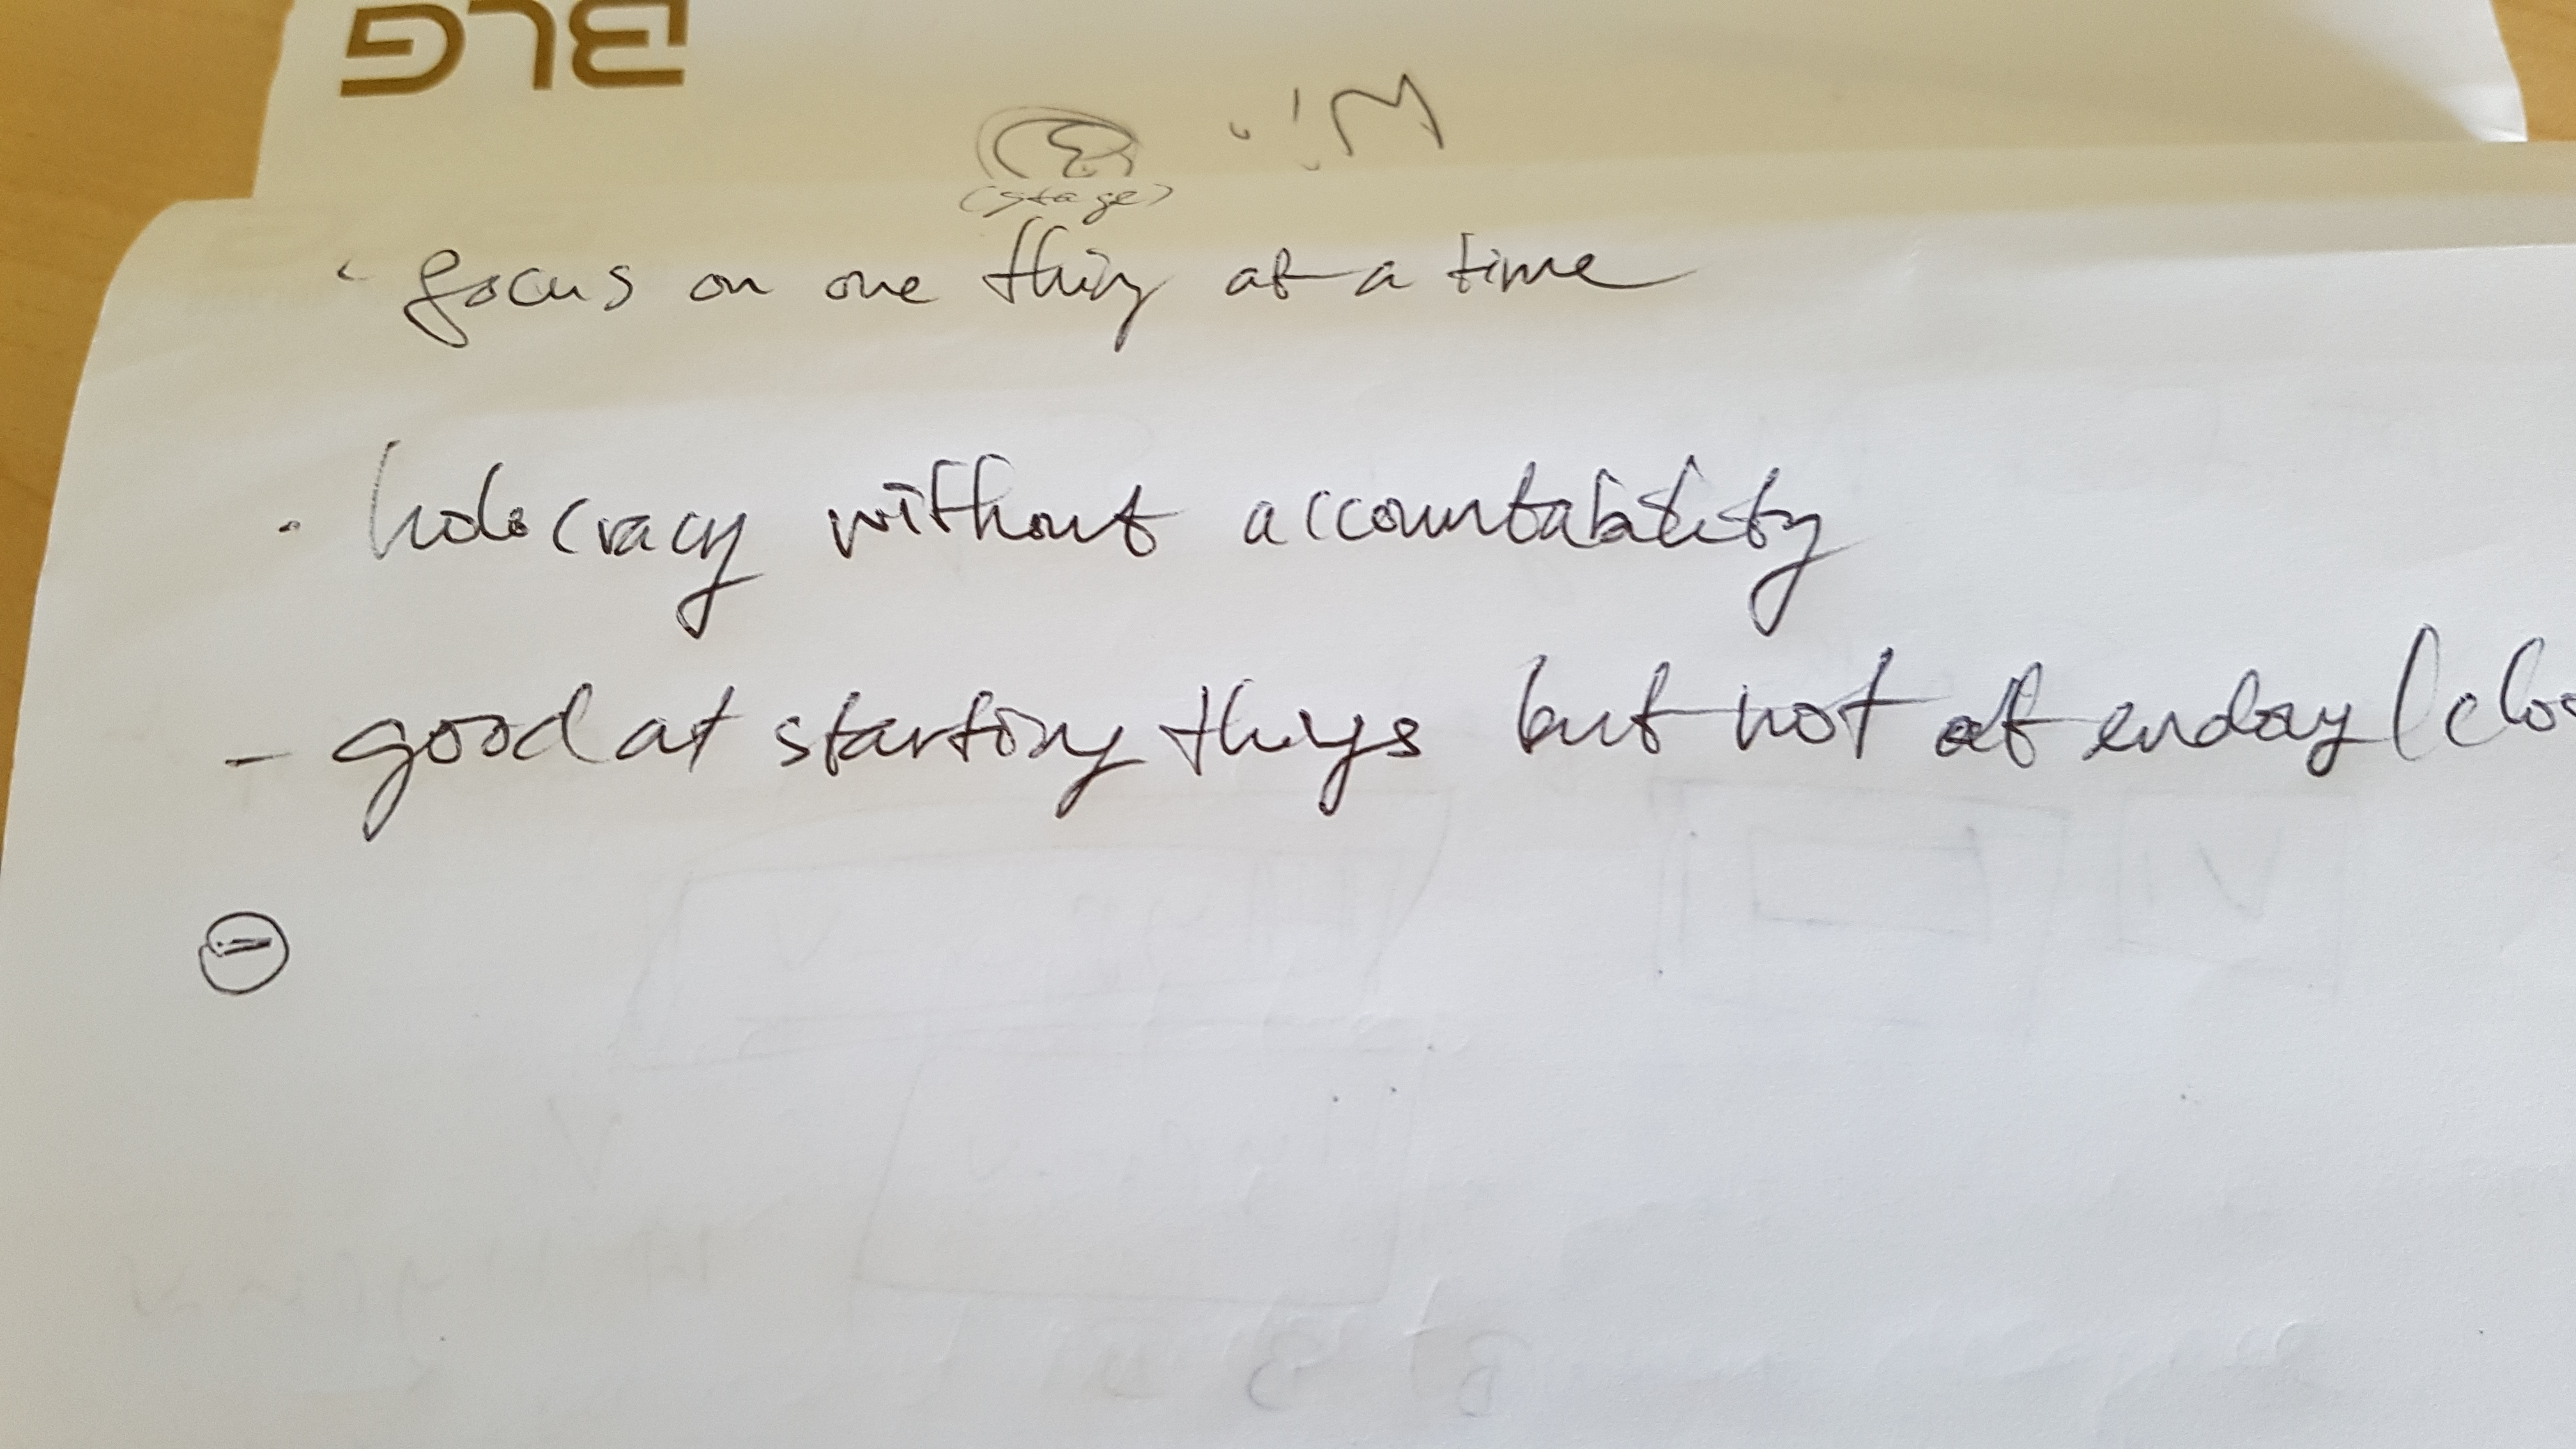 (stage)
· focus on one thing at a time
· without accountability
- good at starting things but not at ending/clo